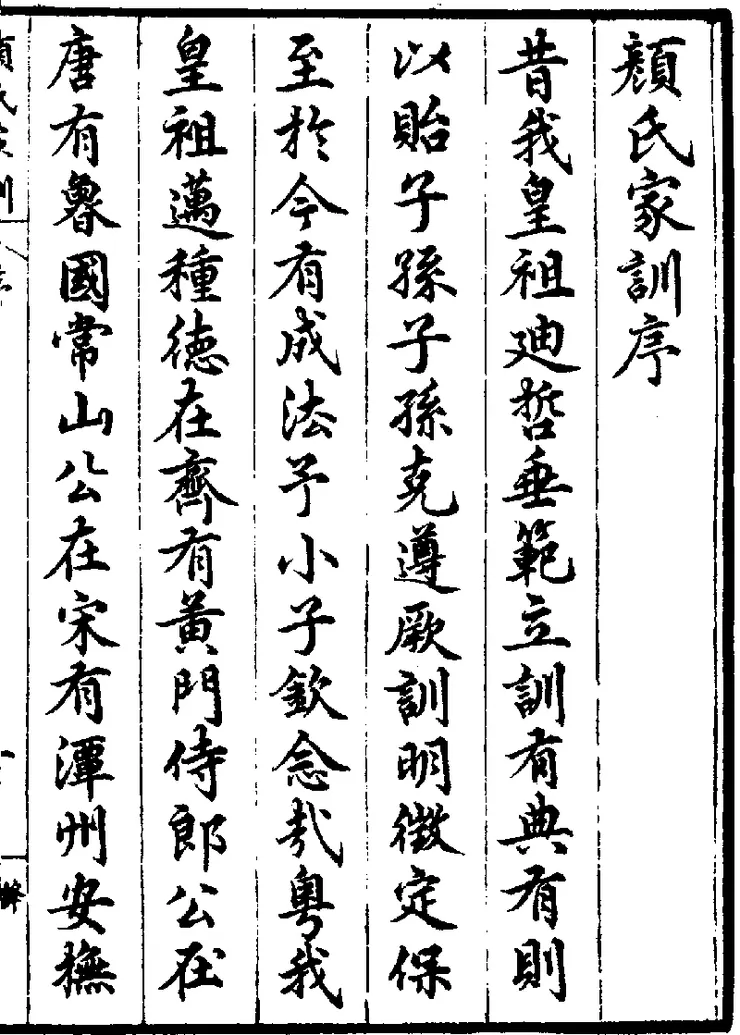 顏氏家訓序
昔我皇祖迪哲垂範立訓有典有則
以貽子孫子孫克遵厥訓明徵定保
至於今有成法予小子欽念哉粵我
皇祖邁種德在齊有黃門侍郎公在
唐有魯國常山公在宋有潭州安撫